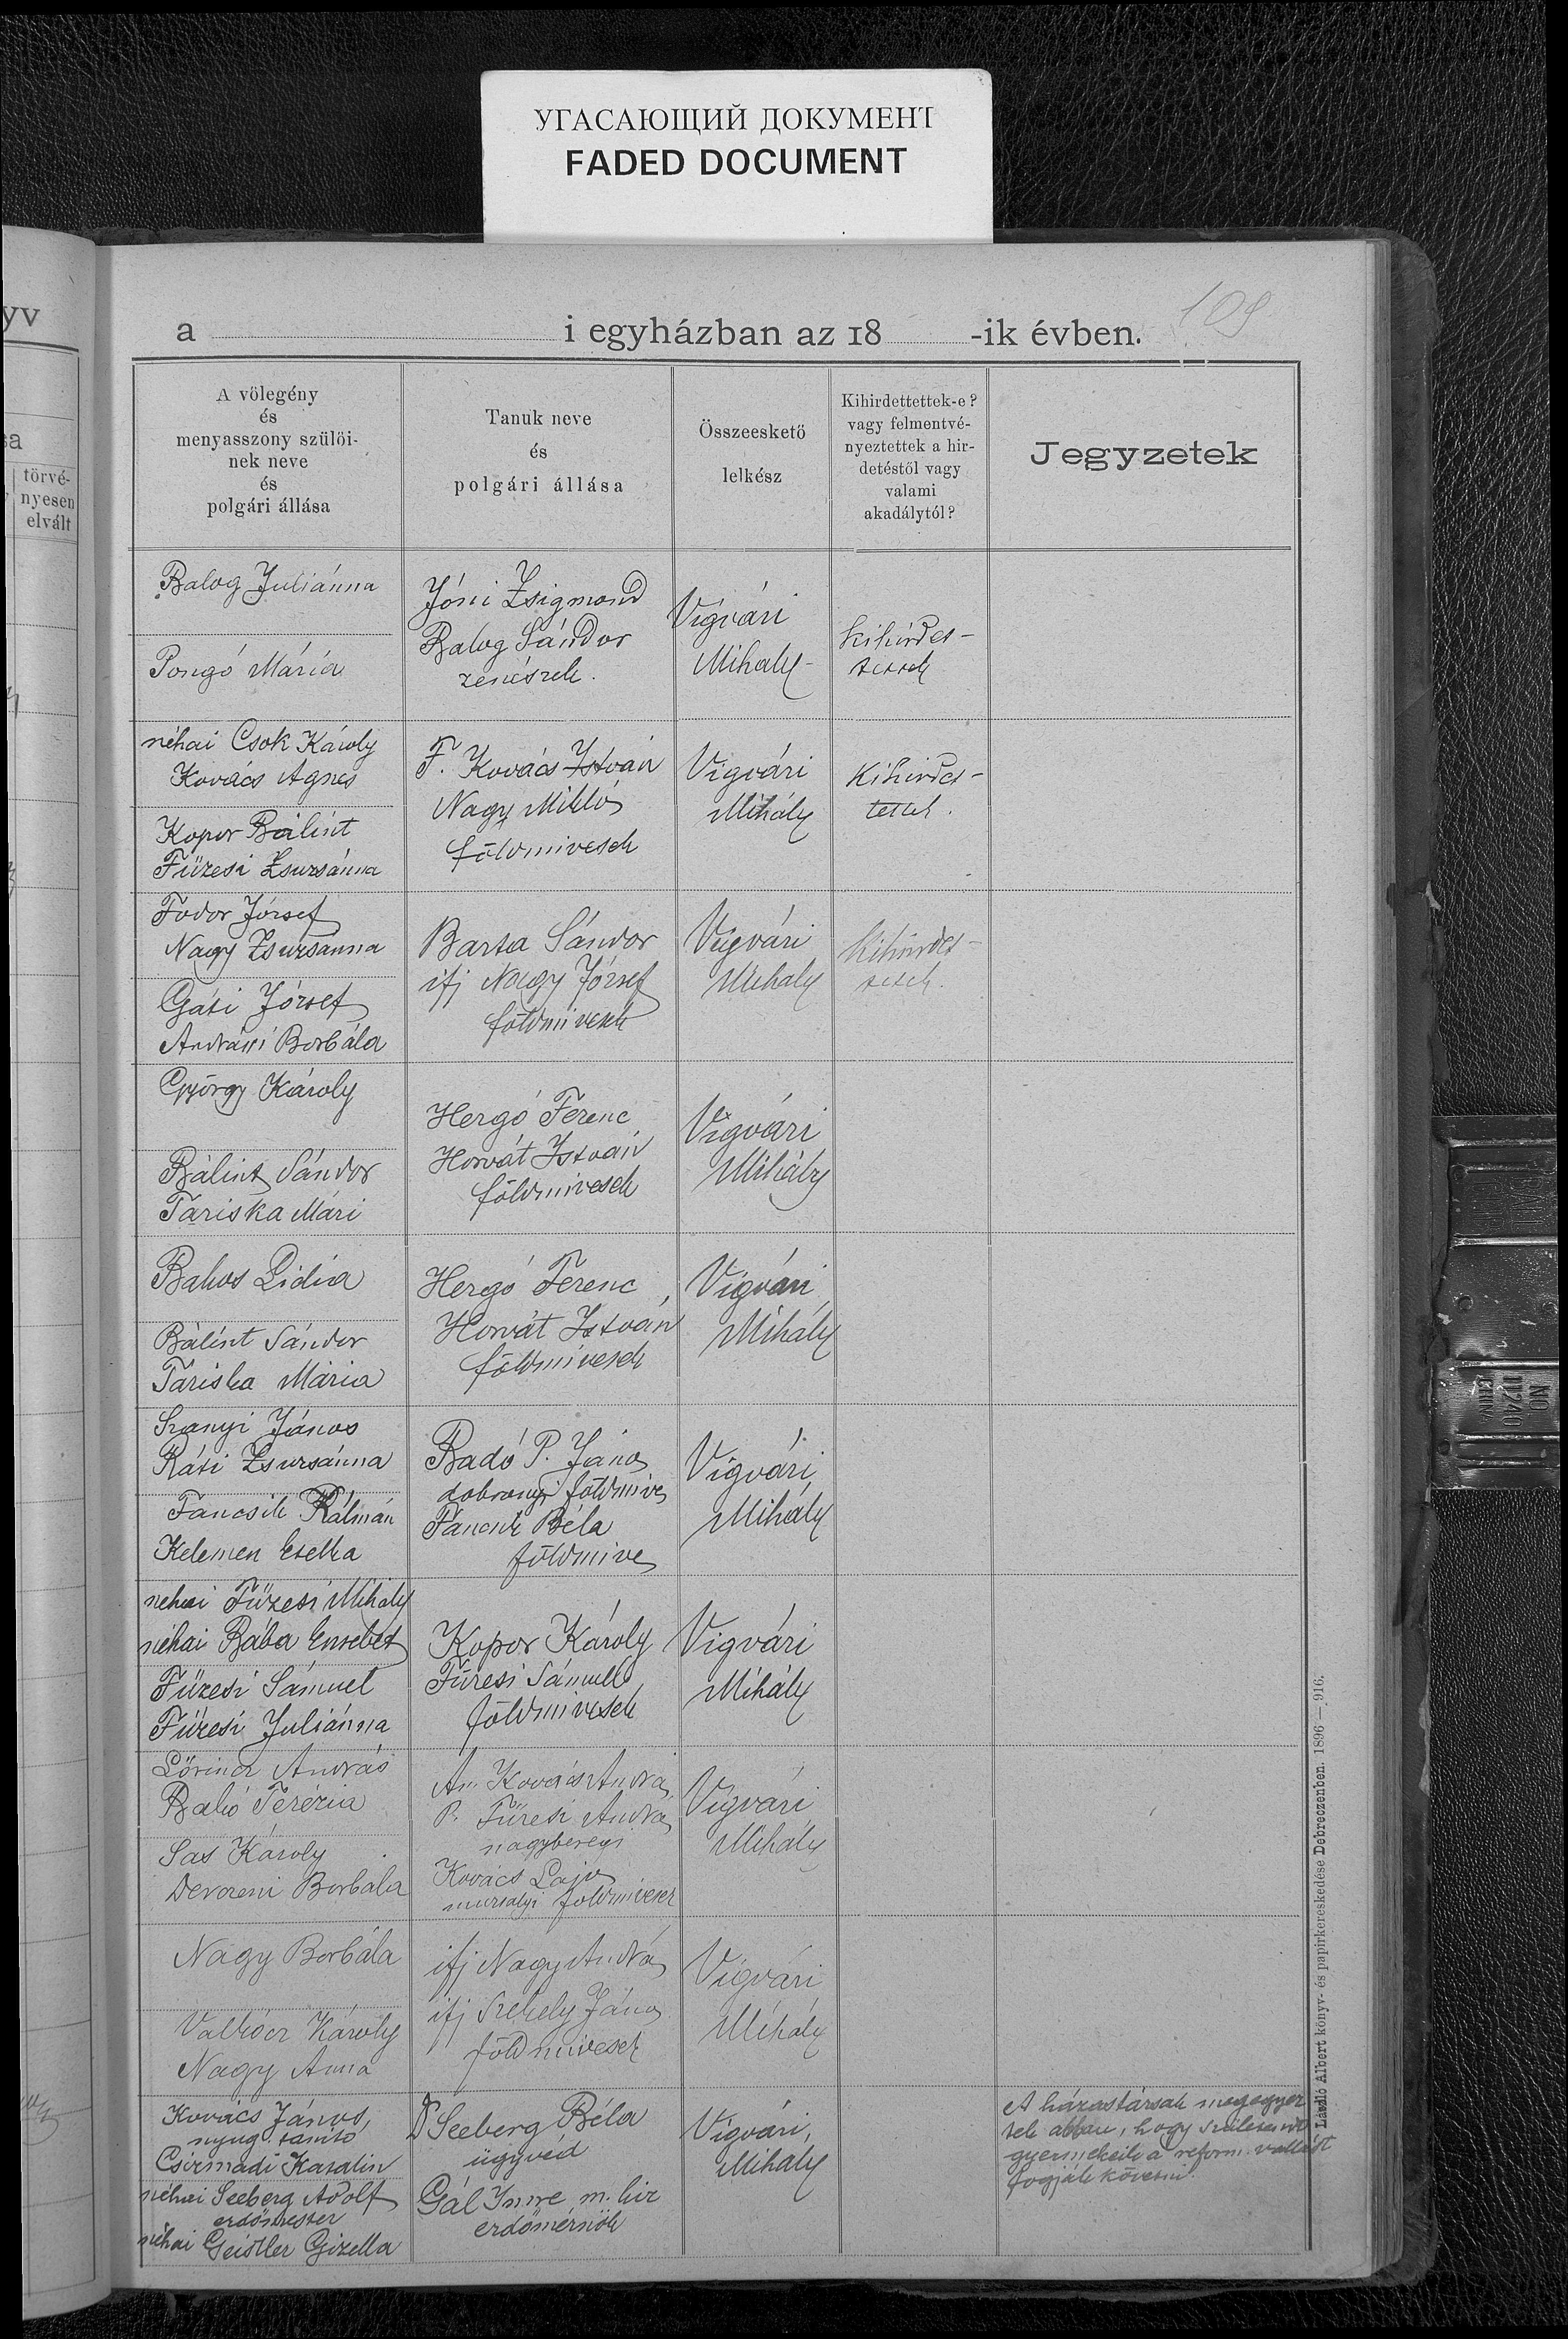 УГАСАЮЩИЙ ДОКУМЕНТ
FADED DOCUMENT
109
yv
törvé-
nyesen
elvált
a i egyházban az 18 -ik évben.
A völegény
és
menyasszony szülöi-
nek neve
és
polgári állása
Tanuk neve
és
polgári állása
Összeeskető
lelkész
Kihirdettettek-e?
vagy felmentvé-
nyeztettek a hir-
detéstől vagy
valami
akadálytól?
Jegyzetek
Balog Juliánna
Pongó Mária
Jóni Zsigmond
Balog Sándor
zenészek.
Vigvári
Mihály
Kihirdet-
tettek
néhai Csok Károly
Kovács Ágnes
Kopor Bálint
Füzesi Zsuzsánna
F. Kovács István
Nagy Miklós
földmivesek
Vigvári
Mihály
Kihirdet-
tettek.
Fodor József
Nagy Zsuzsanna
Gáti József
Andrási Borbála
Barta Sándor
ifj Nagy József
földmivesek
Vigvári
Mihály
Kihirdet-
tetek.
György Károly
Bálint Sándor
Tariska Mári
Hergó Ferenc
Horvát István
földmivesek
Vigvári
Mihály
Bakos Lidia
Bálint Sándor
Táriska Mária
Hergó Ferenc,
Horvát István
földmivesek
Vigvári
Mihály
Szanyi János
Ráti Zsuzsánna
Fancsik Kálmán
Kelemen Etelka
Badó P. János
dobronyi földmives
Fancsik Béla
földmives
Vigvári
Mihály
néhai Füzesi Mihály
néhai Bába Erzsébet
Füzesi Sámuel
Füzesi Juliánna
Kopor Károly
Füzesi Sámuel
földmivesek
Vigvári
Mihály
Lőrincz András
Balió Terézia
Sas Károly
Borbála
An. Kovács András
P. Füzesi András
nagyberegi
Kovács Lajos
földmivesek
Vigvári
Mihály
Nagy Borbála
Károly
Nagy Anna
ifj Nagy András
ifj Székely János
földmivesek
Vigvári
Mihály
Kovács János,
nyug. tanító
Csizmadi Katalin
néhai Seeberg Adolf
erdőmester
néhai Geistler Gizella
Dr Seeberg Béla
ügyvéd
Gál Imre m. kir
erdőmérnök
Vigvári,
Mihály
A házastársak megegyez
tek abban, hogy születendő
gyermekeik a reform. vallást
fogják követni.
László Albert könyv- és papirkereskedése Debreczenben. 1896—916.
NO.
11240